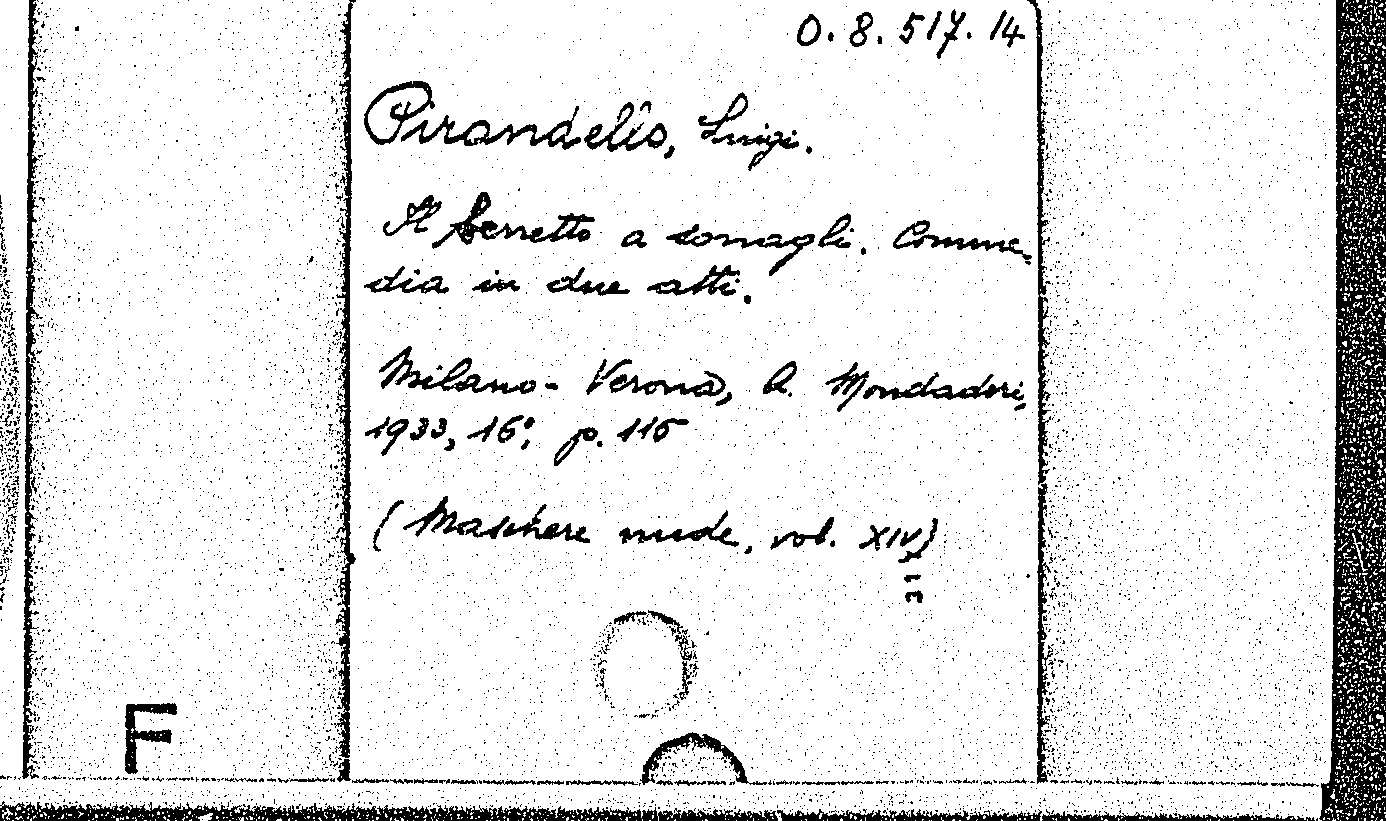 0. 8. 517. 14
Pirandello, Luigi.
Il berretto a sonagli. Comme-
dia in due atti.
Milano - Verona, A. Mondadori,
1933, 16º, p. 115
(Maschere nude, vol. XIV)
31
F